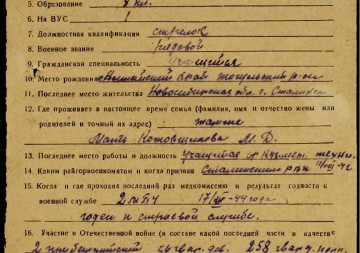 5. Образование 7 кл.
6. На ВУС 1
7. Должностная квалификация стрелок
8. Военное звание рядовой
9. Гражданская специальность учащийся
10 Место рождения край р-он
11. Последнее место жительства Новосибирская обл. г. Сталинск
12. Где проживает в настоящее время семья (фамилия, имя и отчество жены или
родителей и точный их адрес) там же
Мать М. Д.
13. Последнее место работы и должность учащийся
14. Каким райгорвоенкоматом и когда призван Сталинским РВК
15. Когда и где проходил последний раз медкомиссию и результат годности к
военной службе 17/ 44 года
годен к строевой службе.
16. Участие в Отечественной войне (в составе какой последней части в качестве
2 гвар. див. 258 гвард. полк